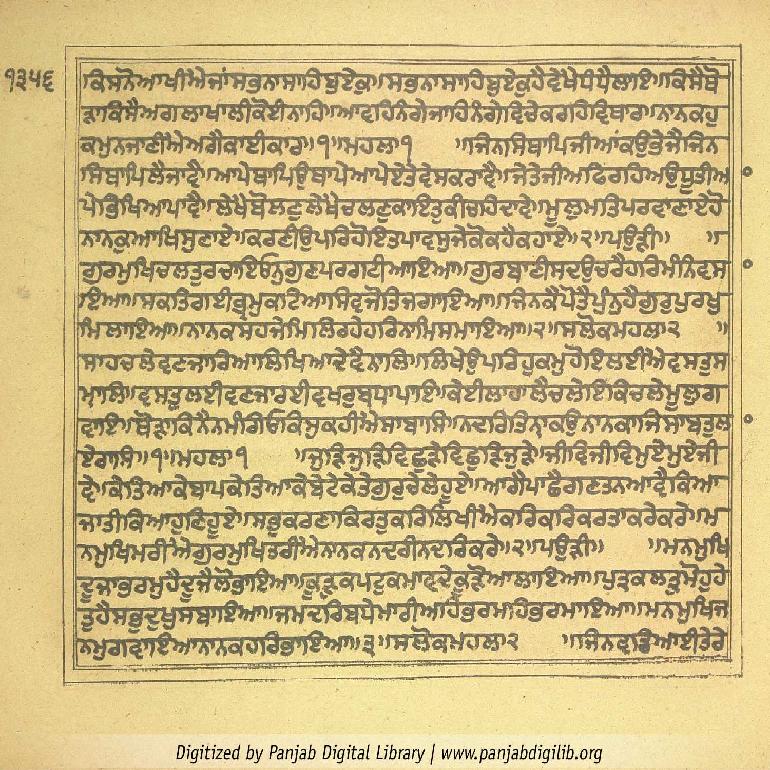 ੧੩੫੬
ਕਿਸਨੋਆਖੀਐਜਾਂਸਭਨਾਸਾਹਿਬੁਏਕੁ॥ਸਭਨਾਸਾਹਿਬੁਏਕੁਹੈਵੇਖੈਧੰਧੈਲਾਇ॥ਕਿਸੈਥੋ
ੜਾਕਿਸੈਅਗਲਾਖਾਲੀਕੋਈਨਾਹਿ॥ਆਵਹਿਨੰਗੇਜਾਹਿਨੰਗੇਵਿਚੇਕਰਹਿਵਿਥਾਰ॥ਨਾਨਕਹੁ
ਕਮੁਨਜਾਣੀਐਅਗੈਕਾਈਕਾਰ॥੧॥ਮਹਲਾ੧ ॥ਜਿਨਸਿਥਾਪਿਜੀਆਂਕਉਭੇਜੈਜਿਨ
ਸਿਥਾਪਿਲੈਜਾਵੈ॥ਆਪੇਥਾਪਿਉਥਾਪੈਆਪੇਏਤੇਵੇਸਕਰਾਵੈ॥ਜੇਤੇਜੀਅਫਿਰਹਿਅਉਧੂਤੀਆ
ਪੇਭਿਖਿਆਪਾਵੈ॥ਲੇਖੈਬੋਲਣੁਲੇਖੈਚਲਣੁਕਾਇਤੁਕੀਚਹਿਦਾਵੇ॥ਮੂਲੁਮਤਿਪਰਵਾਣਾਏਹੋ
ਨਾਨਕੁਆਖਿਸੁਣਾਏ॥ਕਰਣੀਉਪਰਿਹੋਇਤਪਾਵਸੁਜੇਕੋਕਹੈਕਹਾਏ॥੨॥ਪਉੜੀ॥ ॥
ਗੁਰਮੁਖਿਚਲਤੁਰਚਾਇਓਨੁਗੁਣਪਰਗਟੀਆਇਆ॥ਗੁਰਬਾਣੀਸਦਉਚਰੈਹਰਿਮੰਨਿਵਸ
ਾਇਆ॥ਸਕਤਿਗਈਭ੍ਰਮੁਕਟਿਆਸਿਵਜੋਤਿਜਗਾਇਆ॥ਜਿਨਕੈਪੋਤੈਪੁੰਨੁਹੈਗੁਰੁਪੁਰਖੁ
ਮਿਲਾਇਆ॥ਨਾਨਕਸਹਜੇਮਿਲਿਰਹੇਹਰਿਨਾਮਿਸਮਾਇਆ॥੨॥ਸਲੋਕਮਹਲਾ੨ ॥
ਸਾਹਚਲੇਵਣਜਾਰਿਆਲਿਖਿਆਦੇਵੈਨਾਲਿ॥ਲਿਖੇਉਪਰਿਹੁਕਮੁਹੋਇਲਈਐਵਸਤੁਸ
ਮ੍ਹਾਲਿ॥ਵਸਤੁਲਈਵਣਜਾਰਈਵਖਰੁਬਧਾਪਾਇ॥ਕੇਈਲਾਹਾਲੈਚਲੇਇਕਿਚਲੇਮੂਲੁਗ
ਵਾਇ॥ਥੋੜਾਕਿਨੈਨਮੰਗਿਓਕਿਸੁਕਹੀਐਸਾਬਾਸਿ॥ਨਦਰਿਤਿਨਾਕਉਨਾਨਕਾਜਿਸਾਬਤੁਲ
ਾਏਰਾਸਿ॥੧॥ਮਹਲਾ੧ ॥ਜੁੜਿਜੁੜਿਵਿਛੁੜੇਵਿਛੁੜਿਜੁੜੇ॥ਜੀਵਿਜੀਵਿਮੁਏਮੁਏਜੀ
ਵੇ॥ਕੇਤਿਆਕੇਬਾਪਕੇਤਿਆਕੇਬੇਟੇਕੇਤੇਗੁਰਚੇਲੇਹੂਏ॥ਆਗੈਪਾਛੈਗਣਤਨਆਵੈਕਿਆ
ਜਾਤੀਕਿਆਹੁਣਿਹੂਏ॥ਸਭੁਕਰਣਾਕਿਰਤੁਕਰਿਲਿਖੀਐਕਰਿਕਰਿਕਰਤਾਕਰੇਕਰੇ॥ਮ
ਨਮੁਖਿਮਰੀਐਗੁਰਮੁਖਿਤਰੀਐਨਾਨਕਨਦਰੀਨਦਰਿਕਰੇ॥੨॥ਪਉੜੀ॥ ॥ਮਨਮੁਖਿ
ਦੂਜਾਭਰਮੁਹੈਦੂਜੈਲੋਭਾਇਆ॥ਕੂੜੁਕਪਟੁਕਮਾਵਦੇਕੂੜੋਆਲਾਇਆ॥ਪੁਤ੍ਰਕਲਤ੍ਰੁਮੋਹੁਹੇ
ਤੁਹੈਸਭੁਦੁਖੁਸਬਾਇਆ॥ਜਮਦਰਿਬਧੇਮਾਰੀਅਹਿਭਰਮਹਿਭਰਮਾਇਆ॥ਮਨਮੁਖਿਜ
ਨਮੁਗਵਾਇਆਨਾਨਕਹਰਿਭਾਇਆ॥੩॥ਸਲੋਕਮਹਲਾ੨ ॥ਜਿਨਵਡਿਆਈਤੇਰੇ
Digitized by Panjab Digital Library | www.panjabdigilib.org